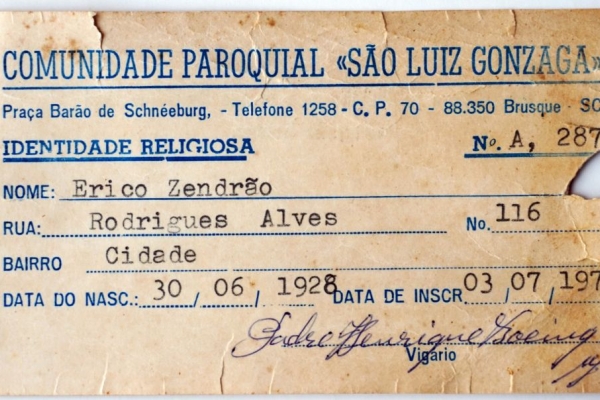 COMUNIDADE PAROQUIAL «SÃO LUIZ GONZAGA»
Praça Barão de Schnéeburg, - Telefone 1258 - C. P. 70 - 88.350 Brusque - SC
IDENTIDADE RELIGIOSA Nº. A, 287
NOME: Erico Zendrão
RUA: Rodrigues Alves No. 116
BAIRRO Cidade
DATA DO NASC.: 30 / 06 / 1928 DATA DE INSCR. 03 / 07 / 197
Padre Henrique
Vigário